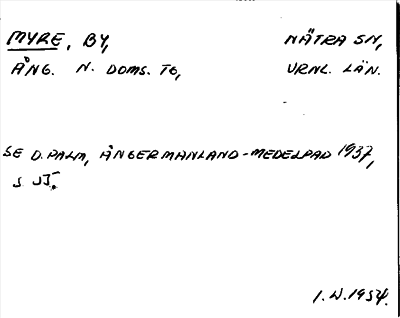 MYRE, BY, NÄTRA SN,
ÅNG. N. DOMS. TG, VRNL. LÄN.
SE D. PALM, ÅNGERMANLAND-MEDELPAD 1937,
S.
1. W. 1954.